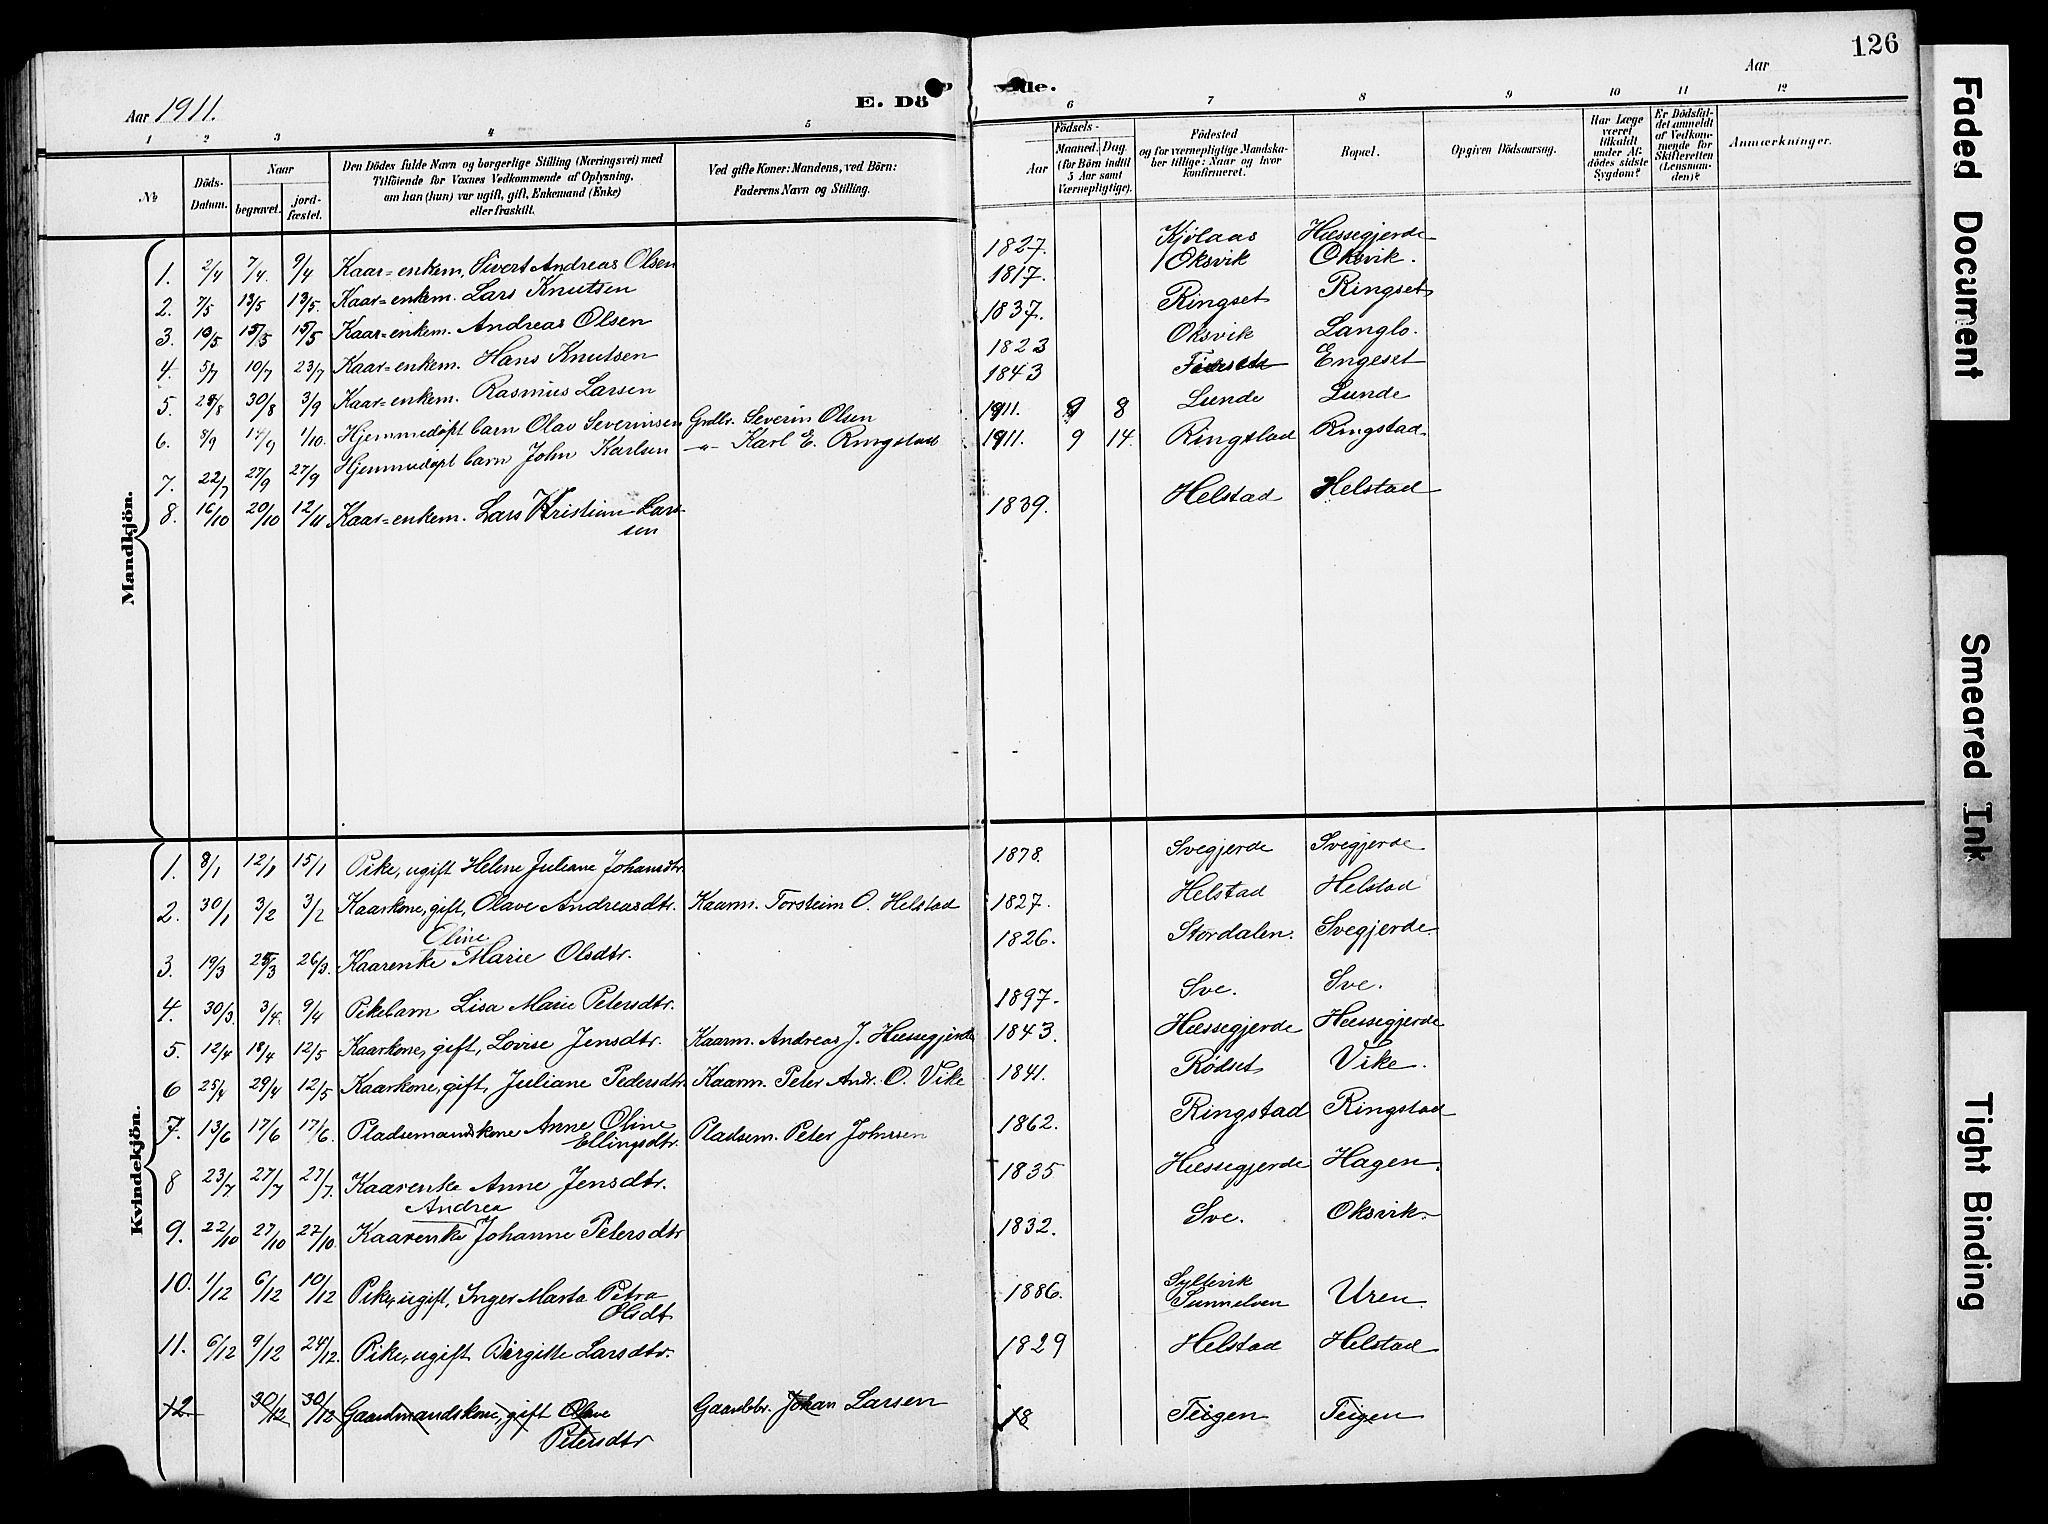 126
Aar 1911.
E. Dö
de.
Aar
1 2 3 4 5 6 7 8 9 10 11 12
No
Döds-Datum.
Naar
begravet.
jord-fæstet.
Den Dödes fulde Navn og borgerlige Stilling (Næringsvei) med
Tilföiende for Voxnes Vedkommende af Oplysning,
om han (hun) var ugift, gift, Enkemand (Enke)
eller fraskilt.
Ved gifte Koner: Mandens, ved Börn:
Faderens Navn og Stilling.
Födsels-
Aar
Maaned. Dag.
(for Börn indtil
5 Aar samt
Værnepligtige).
Födested
og for værnepligtige Mandska-
ber tillige: Naar og hvor
konfirmeret.
Bopæl.
Opgiven Dödsaarsag.
Har Læge
været
tilkaldt
under Af-
dödes sidste
Sygdom?
Er Dödsfal-
det anmeldt
af Vedkom-
mende for
Skifteretten
(Lensman-
den)?
Anmærkninger.
Mandkjön.
1. 2/4 7/4. 9/4 Kaar=enkem. Sivert Andreas Olsen 1827. Kjølaas Hæssegjerde
2. 7/5 13/5 13/5. Kaar=enkem. Lars Knutsen 1817. Oksvik Oksvik.
3. 10/5. 15/5 15/5 Kaar=enkem. Andreas Olsen 1837. Ringset Ringset
4. 5/7 10/7 23/7 Kaar=enkem. Hans Knutsen 1823 Oksvik Langlo.
5. 28/8 30/8 3/9 Kaar=enkem. Rasmus Larsen 1843 Engeset
6. 8/9 14/9 1/10. Hjemmedøpt barn Olav Severinsen Grdbr. Severin Olsen 1911. 9 8 Lunde Lunde
7. 22/7 27/9 27/9 Hjemmedøpt barn John Karlsen -"- Karl E. Ringstad 1911. 9 14. Ringstad Ringstad.
8. 16/10 20/10 12/11 Kaar=enkem. Lars Kristian Lars-
sen 1839. Helstad Helstad
Kvindekjön.
1. 8/1 12/1 15/1 Pike, ugift Helene Juliane Johansdtr. 1878. Svegjerde Svegjerde
2. 30/1 3/2 3/2 Kaarkone, gift, Olave Andreasdtr. Kaarm. Torsteim O. Helstad 1827. Helstad Helstad
Oline
3. 19/3 25/3 26/3. Kaarenke Marie Olsdtr. 1826. Stordalen. Svegjerde.
4. 30/3. 3/4. 9/4 Pikebarn Lisa Marie Petersdtr. 1897. Sve. Sve.
5. 12/4 18/4 12/5 Kaarkone, gift, Lovise Jensdtr. Kaarm. Andreas J. Hæssegjerde 1843. Hæssegjerde Hæssegjerde
6 25/4 29/4 12/5 Kaarkone, gift, Juliane Pedersdtr. Kaarm. Peter Andr. O. Vike 1841. Rødset Vike.
7. 13/6 17/6 17/6. Pladsemandskone Anne Oline
Ellingsdtr. Pladsem. Peter Johnsen 1862. Ringstad Ringstad
8 23/7 27/7 27/7. Kaarenke Anne Jensdtr. 1835 Hæssegjerde Hagen.
Andrea
9. 22/10 27/10 27/10. Kaarenke Johanne Petersdtr 1832. Sve. Oksvik.
10. 1/12 6/12 10/12 Pike, ugift, Inger Marta Petra
Olsdt 1886. Syltevik
Sunnelven Uren.
11. 6/12 9/12 24/12. Pike, ugift, Birgitte Larsdtr. 1829 Helstad Helstad
12. 30/12 30/12 Gaardmandskone, gift Olave
Petersdtr Gaardbr. Johan Larsen 18 Teigen Teigen
Faded Document
Smeared Ink
Tight Binding